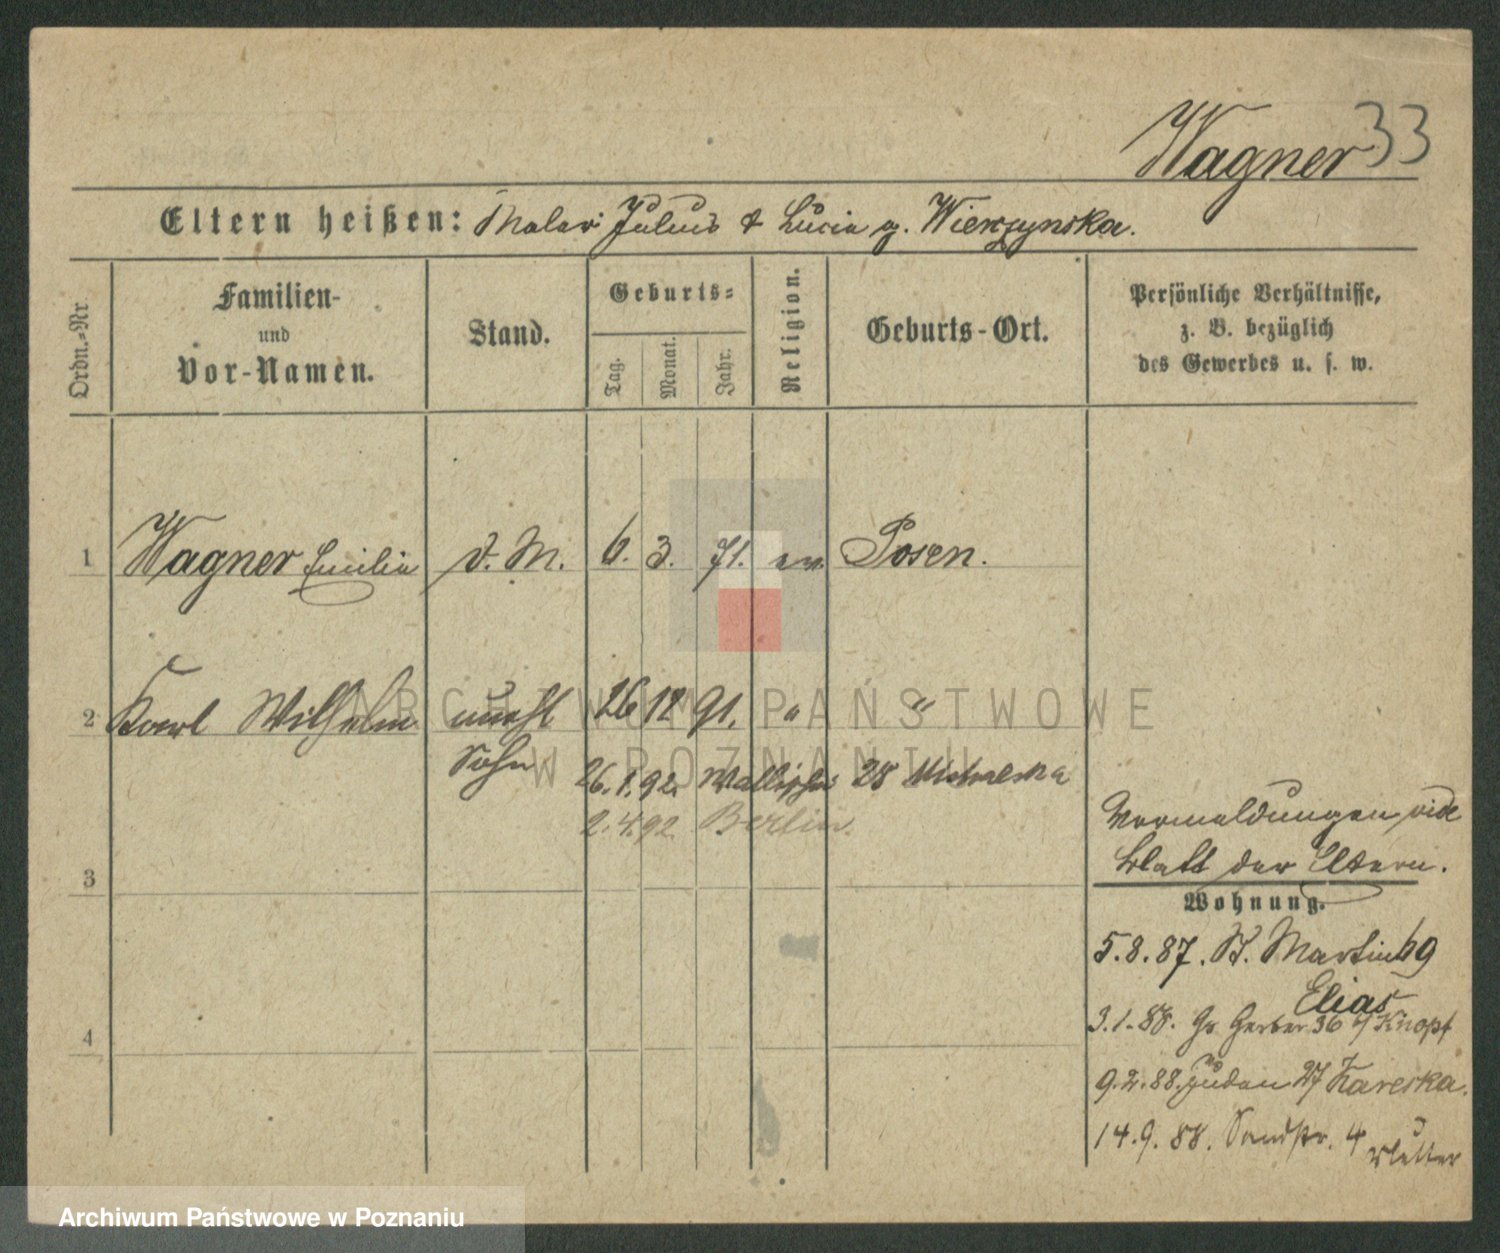 Wagner 33
Eltern heißen: Maler Julius & Lucia g. Wierzynska.
Ordn.-Nr
Familien-
und
Vor-Namen.
Stand.
Geburts-
Tag.
Monat.
Jahr.
Religion.
Geburts-Ort.
Persönliche Verhältnisse,
z. B. bezüglich
des Gewerbes u. s. w.
1 Wagner Emilie d. M. 6. 3. 71. ev. Posen.
2 Karl Wilhelm unehl 26 12 91. " "
Sohn
26.1.92. Wallischei 28
2.4.92 Berlin.
Vormeldungen vide
Blatt der Eltern.
3
Wohnung.
5.8.87. St. Martin 69
Elias
3.1.88. Gr Gerber 36 b/ Knopf
9.2.88. Juden 27
4
14.9.88. Sandstr. 4
Mutter
ARCHIWUM PAŃSTWOWE
W POZNANIU
Archiwum Państwowe w Poznaniu